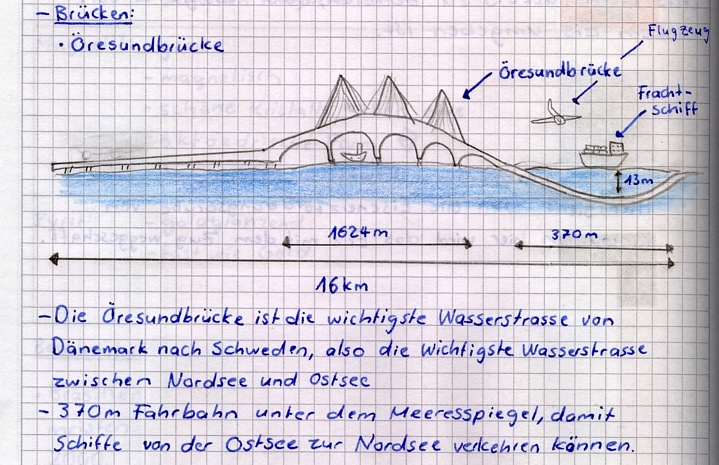 - Brücken:
• Öresundbrücke
Flugzeug
Öresundbrücke
Fracht-
schiff
13m
1624m
370m
16km
- Die Öresundbrücke ist die wichtigste Wasserstrasse von
Dänemark nach Schweden, also die wichtigste Wasserstrasse
zwischen Nordsee und Ostsee
- 370m Fahrbahn unter dem Meeresspiegel, damit
Schiffe von der Ostsee zur Nordsee verkehren können.